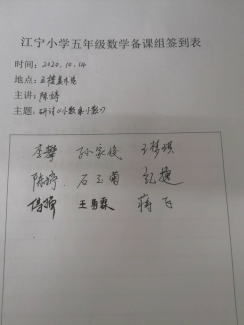 江宁小学五年级数学备课组签到表
时间：2020.10.14
地点：五楼
主讲：陈婷
主题：研讨《小数乘小数》
李攀 孙家俊 王梦琪
陈婷 石玉 纪捷
王勇霖 蒋飞